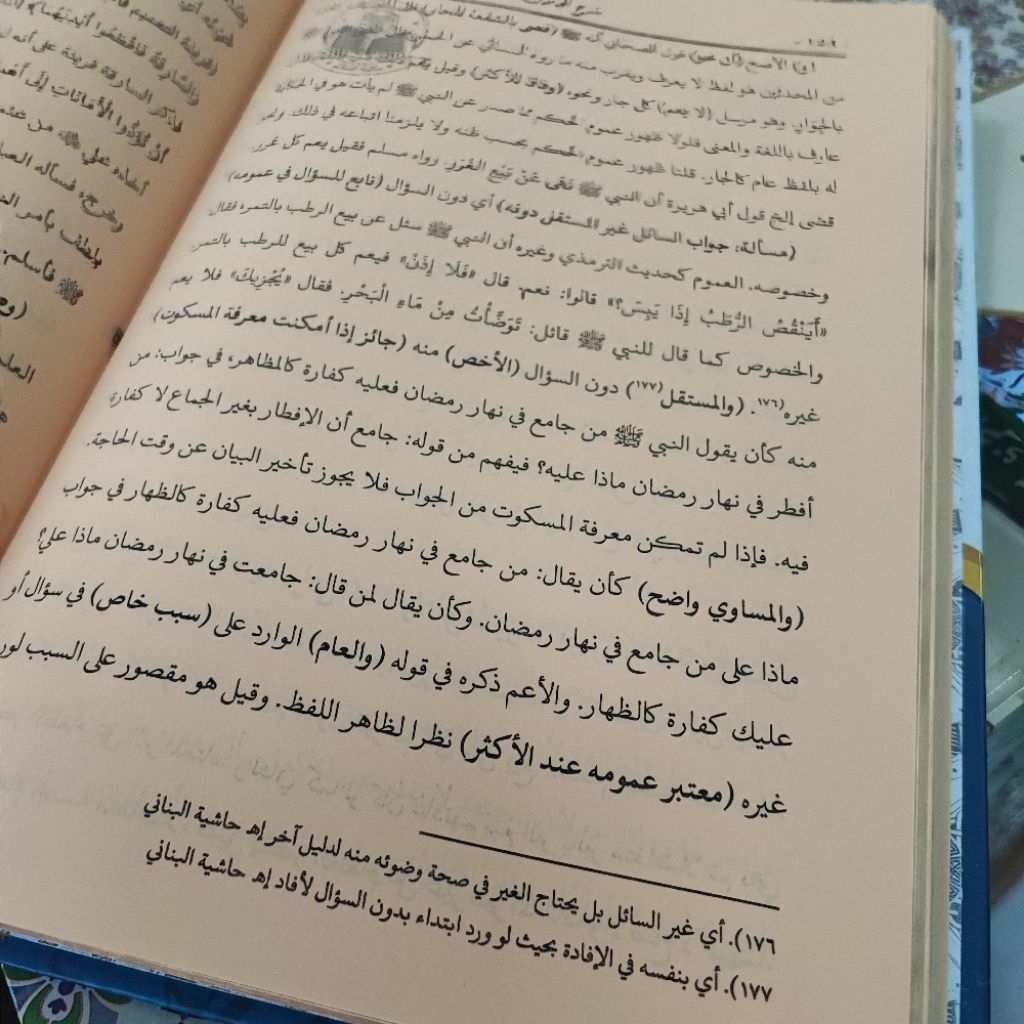 و) الأصح (أن نحو) قول الصحابي أنه ﷺ (قضى بالشفعة للجار)
من المحدثين هو لفظ لا يعرف ويقرب منه ما رواه النسائي عن الحسن
بالجوار. وهو مرسل (لا يعم) كل جار ونحوه (وفاقا للأكثر) وقيل يعم
عارف باللغة والمعنى فلولا ظهور عموم الحكم مما صدر عن النبي ﷺ لم يأت هو في الحكاية
له بلفظ عام كالجار. قلنا ظهور عموم الحكم بحسب ظنه ولا يلزمنا اتباعه في ذلك. ونحو
قضى إلخ قول أبي هريرة أن النبي ﷺ نَهَى عَنْ بَيْعِ الْغَرَرِ. رواه مسلم فقيل يعم كل غرر.
(مسألة: جواب السائل غير المستقل دونه) أي دون السؤال (تابع للسؤال في عمومه)
وخصوصه. العموم كحديث الترمذي وغيره أن النبي ﷺ سئل عن بيع الرطب بالتمر، فقال
«أَيَنْقُصُ الرُّطَبُ إِذَا يَبِسَ؟» قالوا: نعم. قال «فَلَا إِذَنْ» فيعم كل بيع للرطب بالتمر.
والخصوص كما قال للنبي ﷺ قائل: تَوَضَّأْتُ مِنْ مَاءِ الْبَحْرِ. فقال «يُجْزِيكَ» فلا يعم
غيره(١٧٦). (والمستقل(١٧٧) دون السؤال (الأخص) منه (جائز إذا أمكنت معرفة المسكوت)
منه كأن يقول النبي ﷺ من جامع في نهار رمضان فعليه كفارة كالمظاهر، في جواب: من
أفطر في نهار رمضان ماذا عليه؟ فيفهم من قوله: جامع أن الإفطار بغير الجماع لا كفارة
فيه. فإذا لم تمكن معرفة المسكوت من الجواب فلا يجوز تأخير البيان عن وقت الحاجة.
(والمساوي واضح) كأن يقال: من جامع في نهار رمضان فعليه كفارة كالظهار في جواب
ماذا على من جامع في نهار رمضان. وكأن يقال لمن قال: جامعت في نهار رمضان ماذا علي؟
عليك كفارة كالظهار. والأعم ذكره في قوله (والعام) الوارد على (سبب خاص) في سؤال أو
غيره (معتبر عمومه عند الأكثر) نظرا لظاهر اللفظ. وقيل هو مقصور على السبب
١٧٦). أي غير السائل بل يحتاج الغير في صحة وضوئه منه لدليل آخر إهـ حاشية البناني
١٧٧). أي بنفسه في الإفادة بحيث لو ورد ابتداء بدون السؤال لأفاد إهـ حاشية البناني